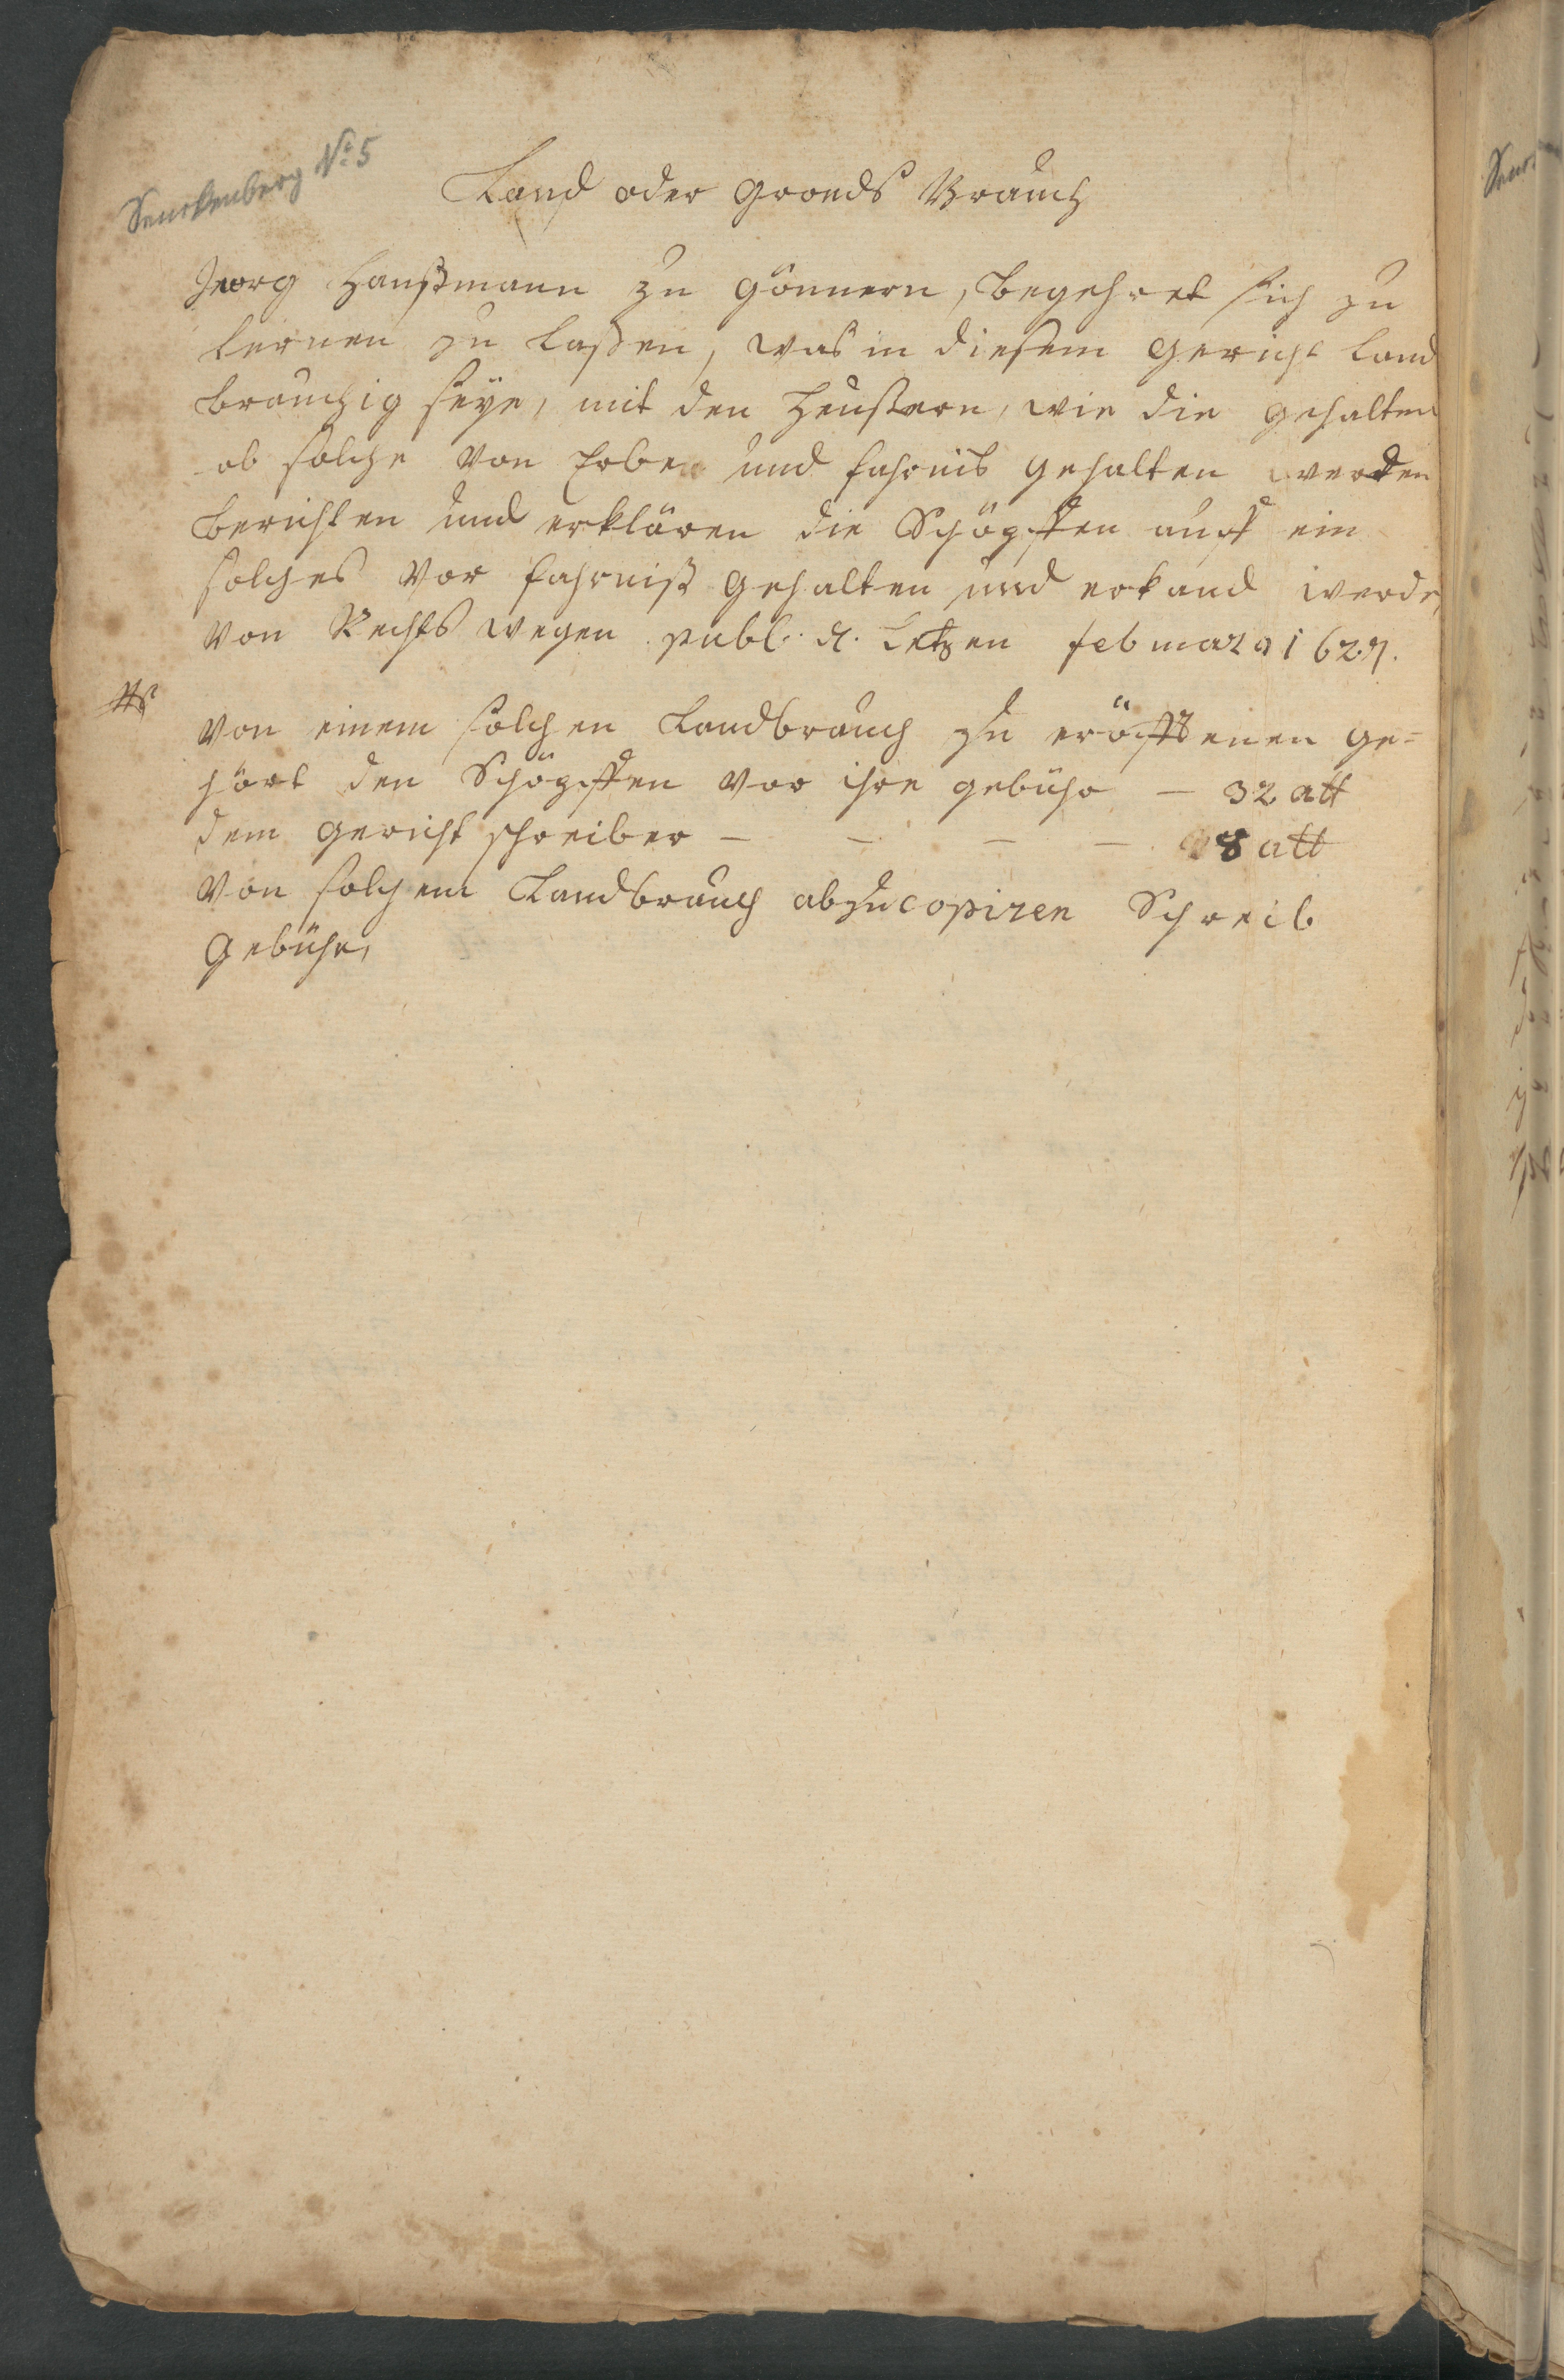 Senckenberg No. 5
Land oder Gronds Brauch
Georg Hanßmann zu Gönnern, begehret sich zu
lernen zu laßen, was in diesem Gericht land
bräuchig seye, mit den Heußern, wie die gehalten
ob solche von Erben und fahrnis gehalten werden
berichten und erklären die Schöpffen auff ein
solches vor fahrniß gehalten und erkand werde,
von Rechts wegen publ. d. Letzen februarÿ 1627.
von einem solchen Landbrauch zu eröffenen ge-
hört den Schöpffen vor ihre gebühr – 32 att
dem Gericht schreiber – – – – 8 att
von solchem Landbrauch abzucopiren Schreib
Gebühr,